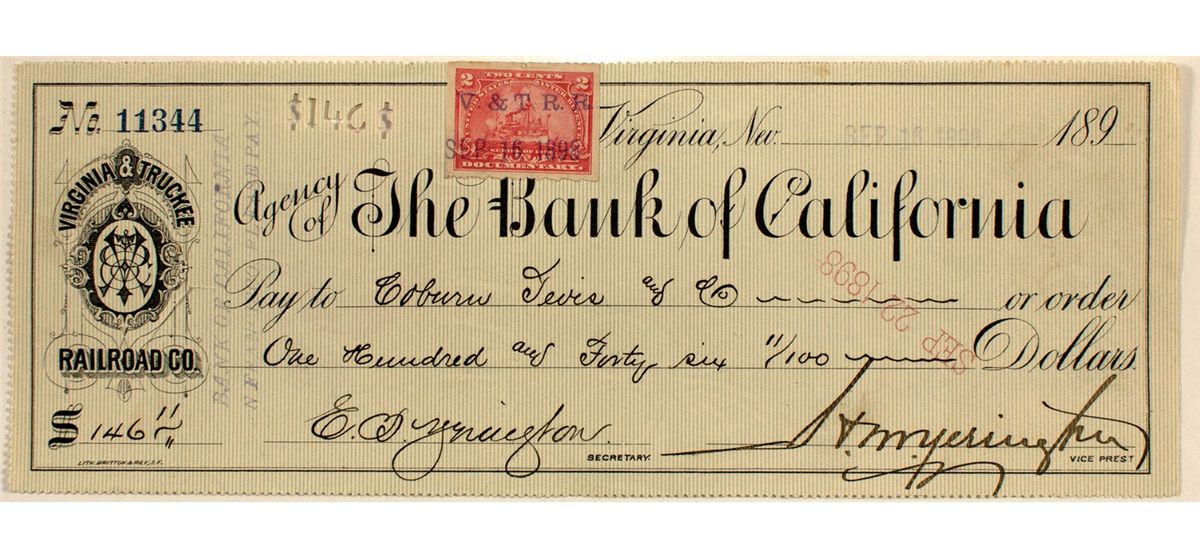 No. 11344
$146$
2 TWO CENTS 2
V. & T. R. R.
SEP 16 1898
DOCUMENTARY.
Virginia, Nev. SEP 16 189
VIRGINIA & TRUCKEE
RAILROAD CO.
BANK OF CALIFORNIA
Agency of The Bank of California
Pay to Coburn Tevis and Co or order
One Hundred and Forty six 11/100 Dollars.
SEP 22 1898
$ 146 11
E. B. Yerington.
SECRETARY.
H. M. Yerington
VICE PREST
LITH. BRITTON & REY, S.F.